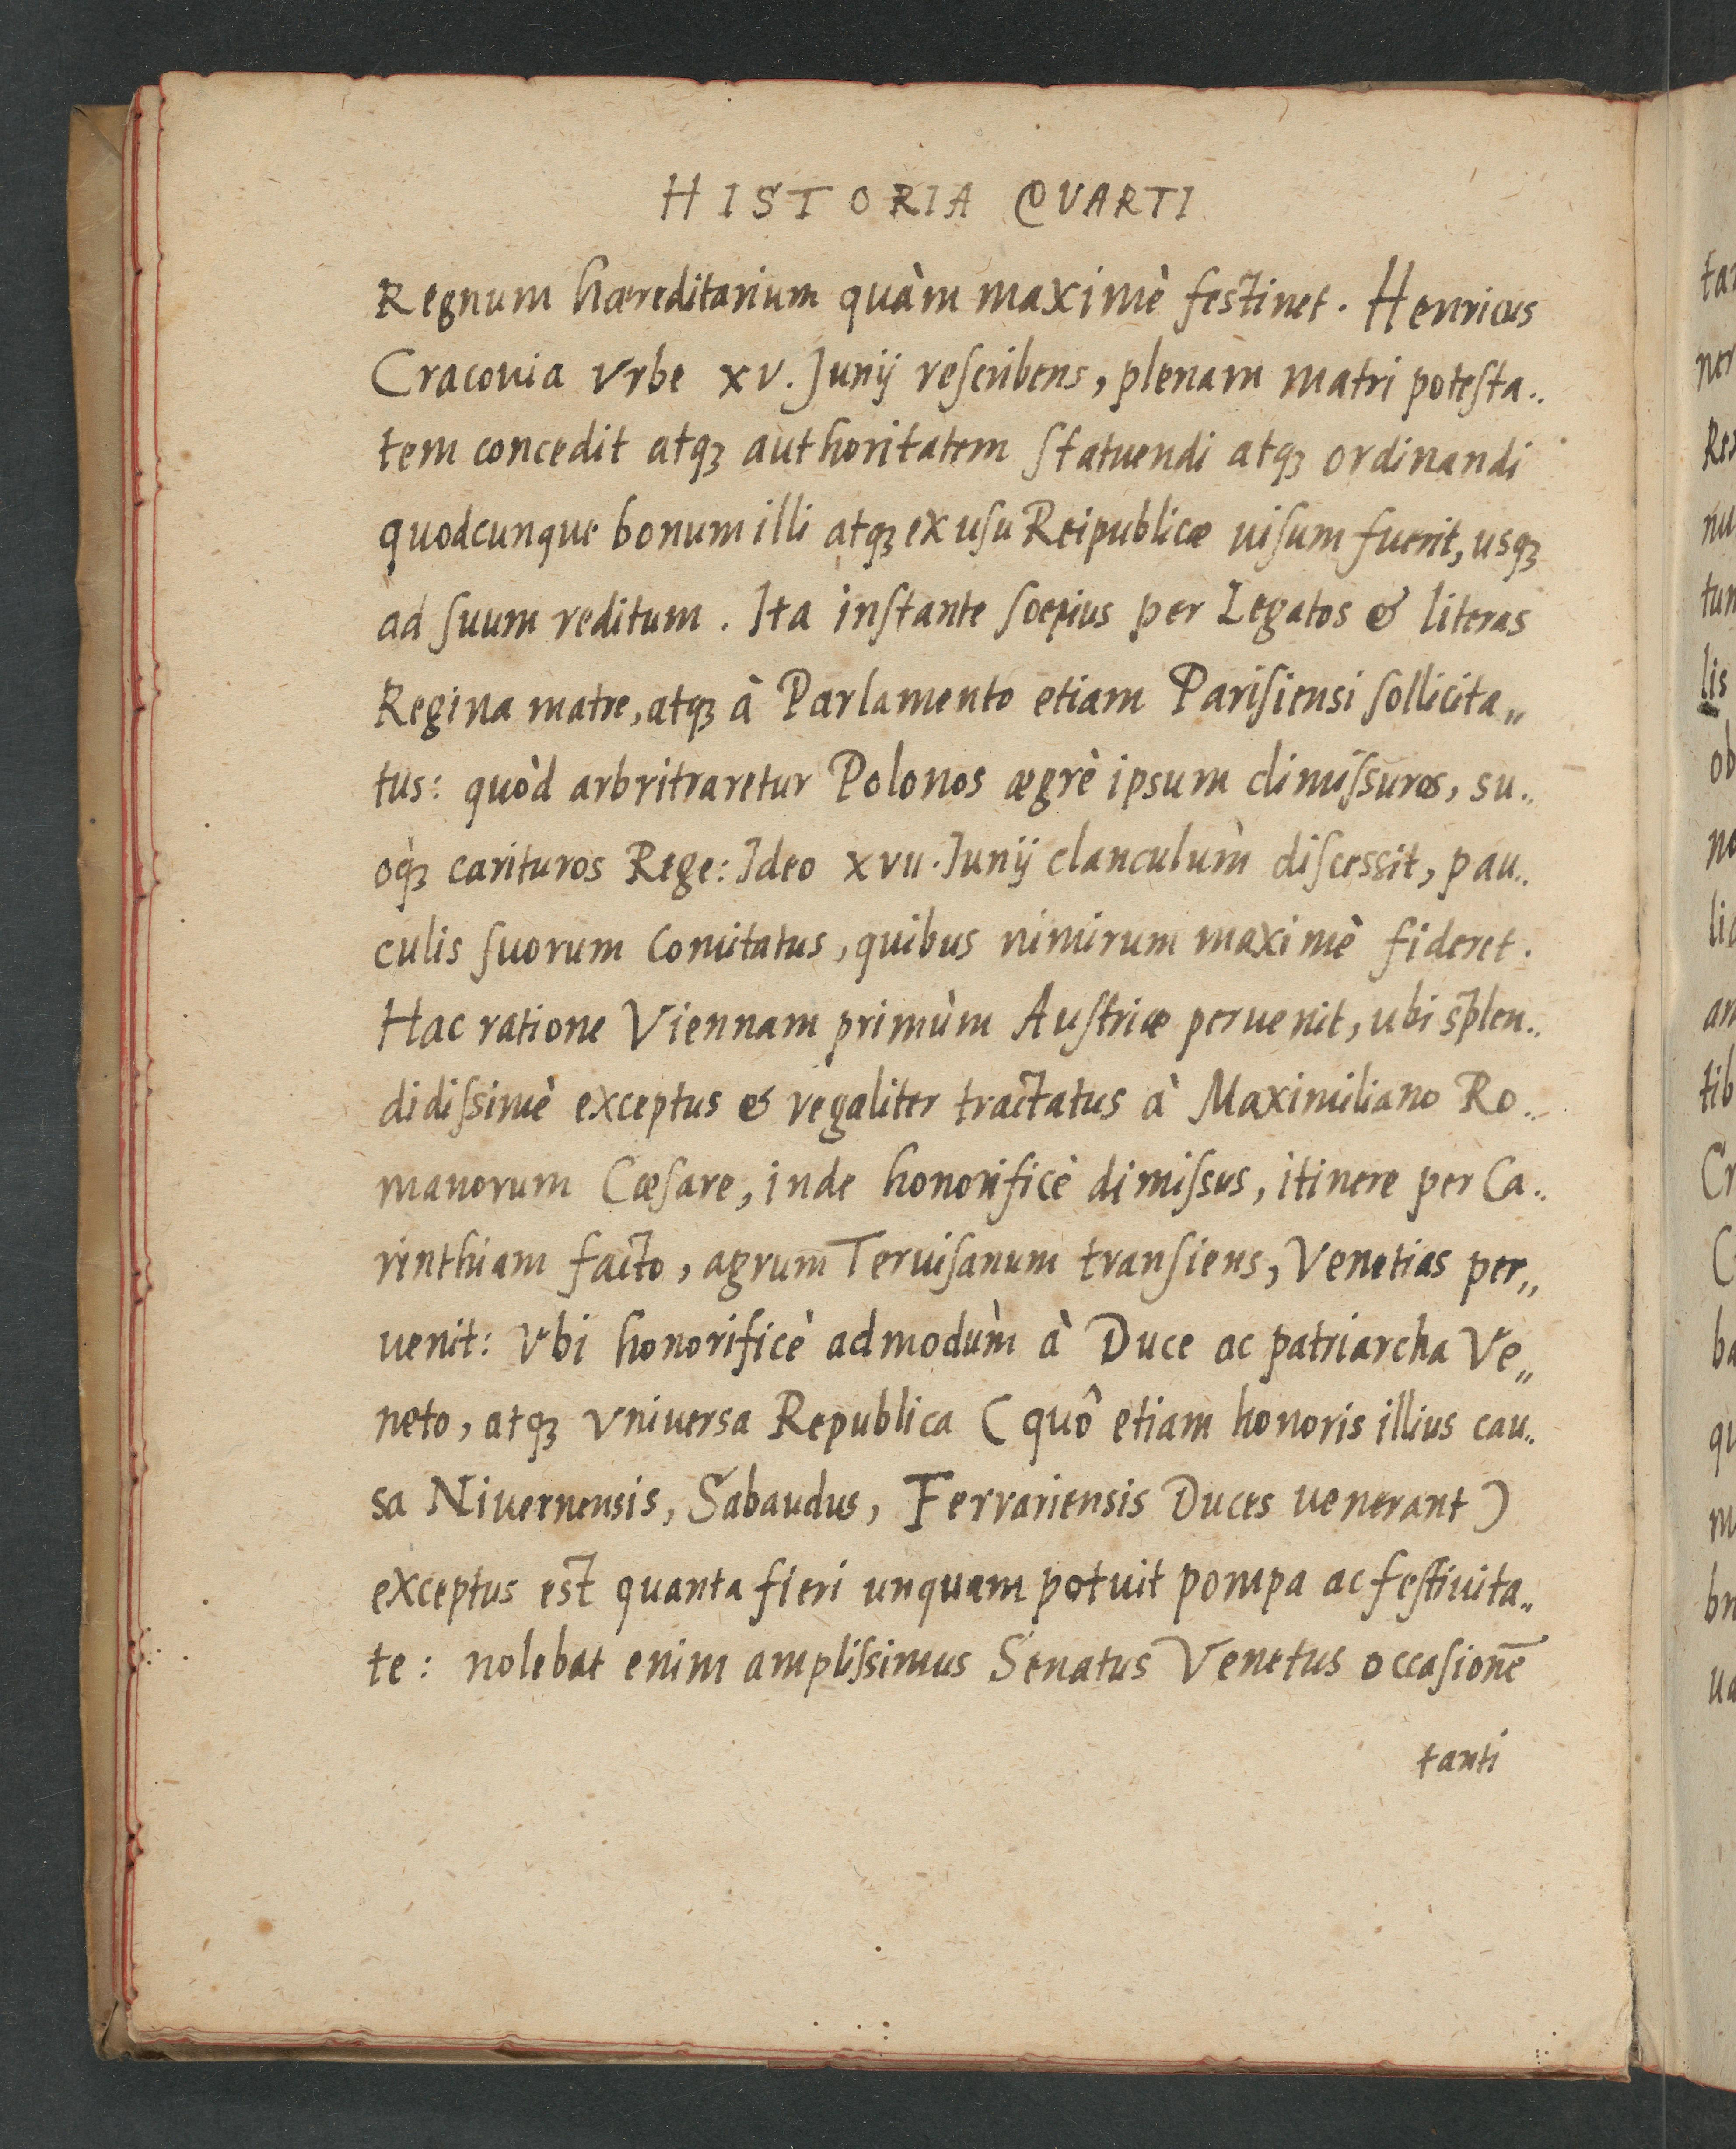 HISTORIA QVARTI
Regnum hæreditarium quàm maximè festinet. Henricus
Cracouia vrbe xv. Junij reſcribens, plenam matri poteſta..
tem concedit atqꝫ authoritatem ſtatuendi atqꝫ ordinandi
quodcunque bonum illi atqꝫ ex uſu Reipublicæ uiſum fuerit, usqꝫ
ad ſuum reditum. Ita inſtante ſœpius per Legatos & literas
Regina matre, atqꝫ à Parlamento etiam Pariſiensi ſollicita„
tus: quòd arbritraretur Polonos ægrè ipsum dimiſsuros, su..
oqꝫ carituros Rege: Ideo xvii. Junij clanculùm diſcessit, pau..
culis ſuorum Comitatus, quibus nimirum maximè fideret.
Hac ratione Viennam primùm Auſtriæ peruenit, ubi splen..
didiſsimè exceptus & regaliter tractatus à Maximiliano Ro..
manorum Cæſare, inde honorificè dimiſsus, itinere per Ca..
rinthiam facto, agrum Teruiſanum tranſiens, Venetias per„
uenit: Vbi honorificè admodùm à Duce ac patriarcha Ve„
neto, atqꝫ vniuersa Republica (quô etiam honoris illius cau..
sa Niuernensis, Sabaudus, Ferrariensis Duces uenerant)
exceptus est quanta fieri unquam potuit pompa ac feſtiuita„
te: nolebat enim ampliſsimus Senatus Venetus occaſionē
tanti